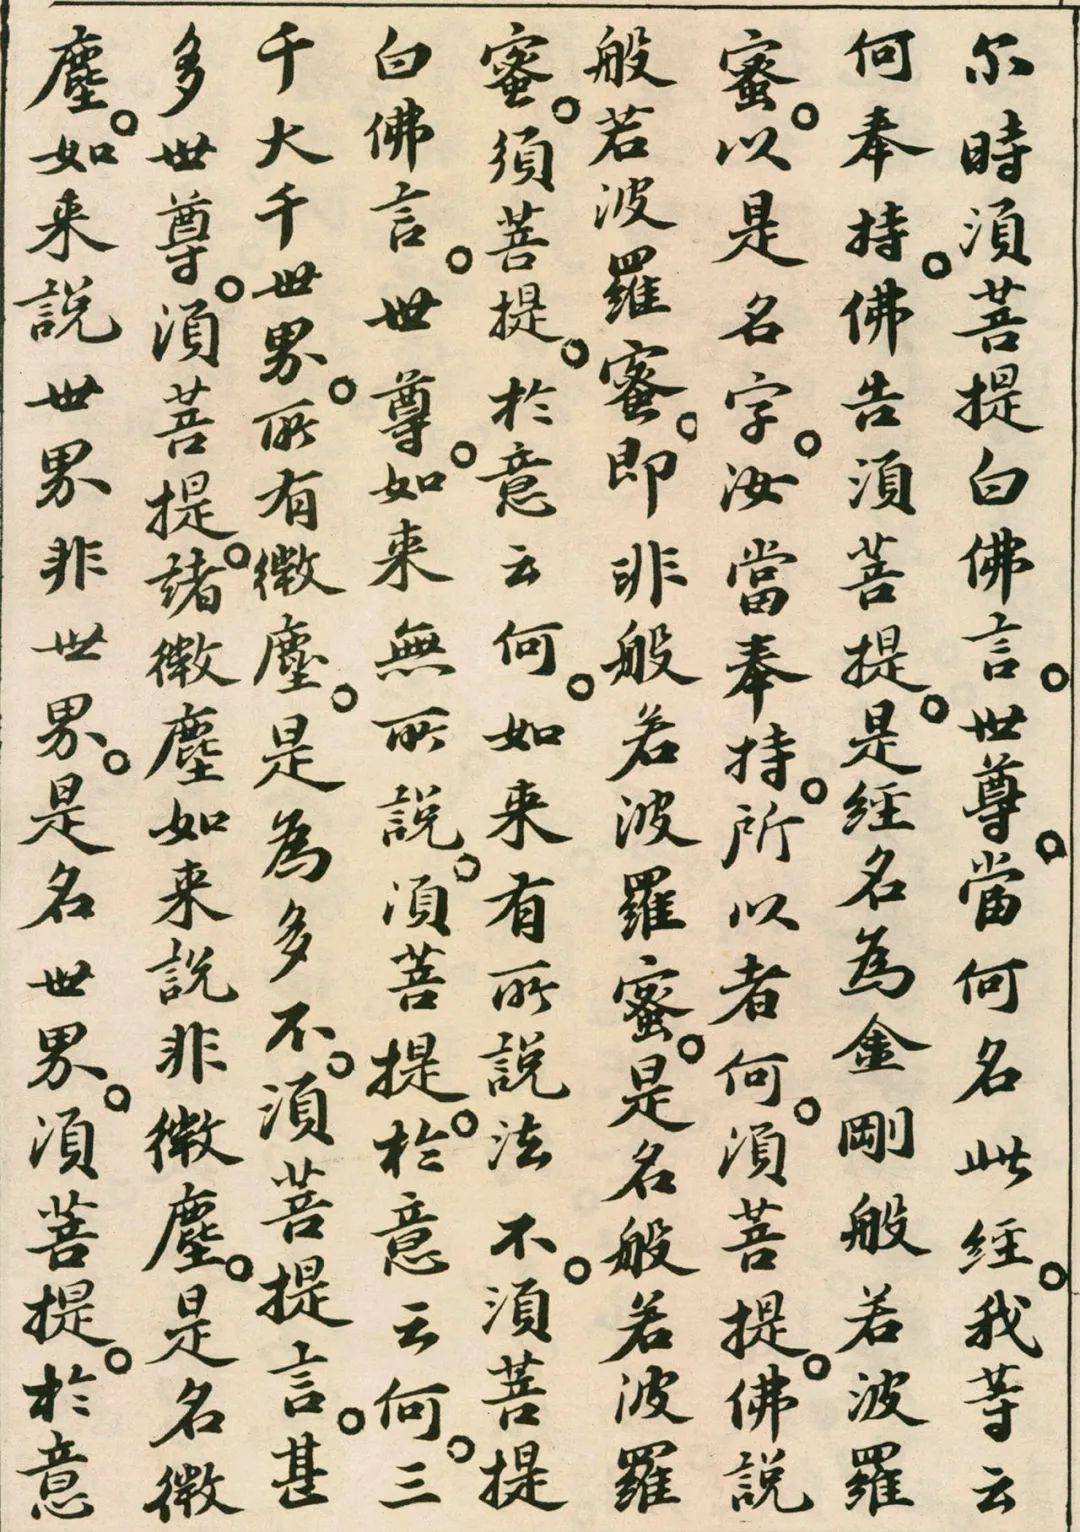 尓時須菩提白佛言。世尊。當何名此経。我等云
何奉持。佛告須菩提。是経名為金剛般若波羅
蜜。以是名字。汝當奉持。所以者何。須菩提。佛說
般若波羅蜜。即非般若波羅蜜。是名般若波羅
蜜。須菩提。於意云何。如来有所說法不。須菩提
白佛言。世尊。如来無所說。須菩提。於意云何。三
千大千世界。所有微塵。是為多不。須菩提言。甚
多世尊。須菩提。諸微塵如来說非微塵。是名微
塵。如来說世界非世界。是名世界。須菩提。於意